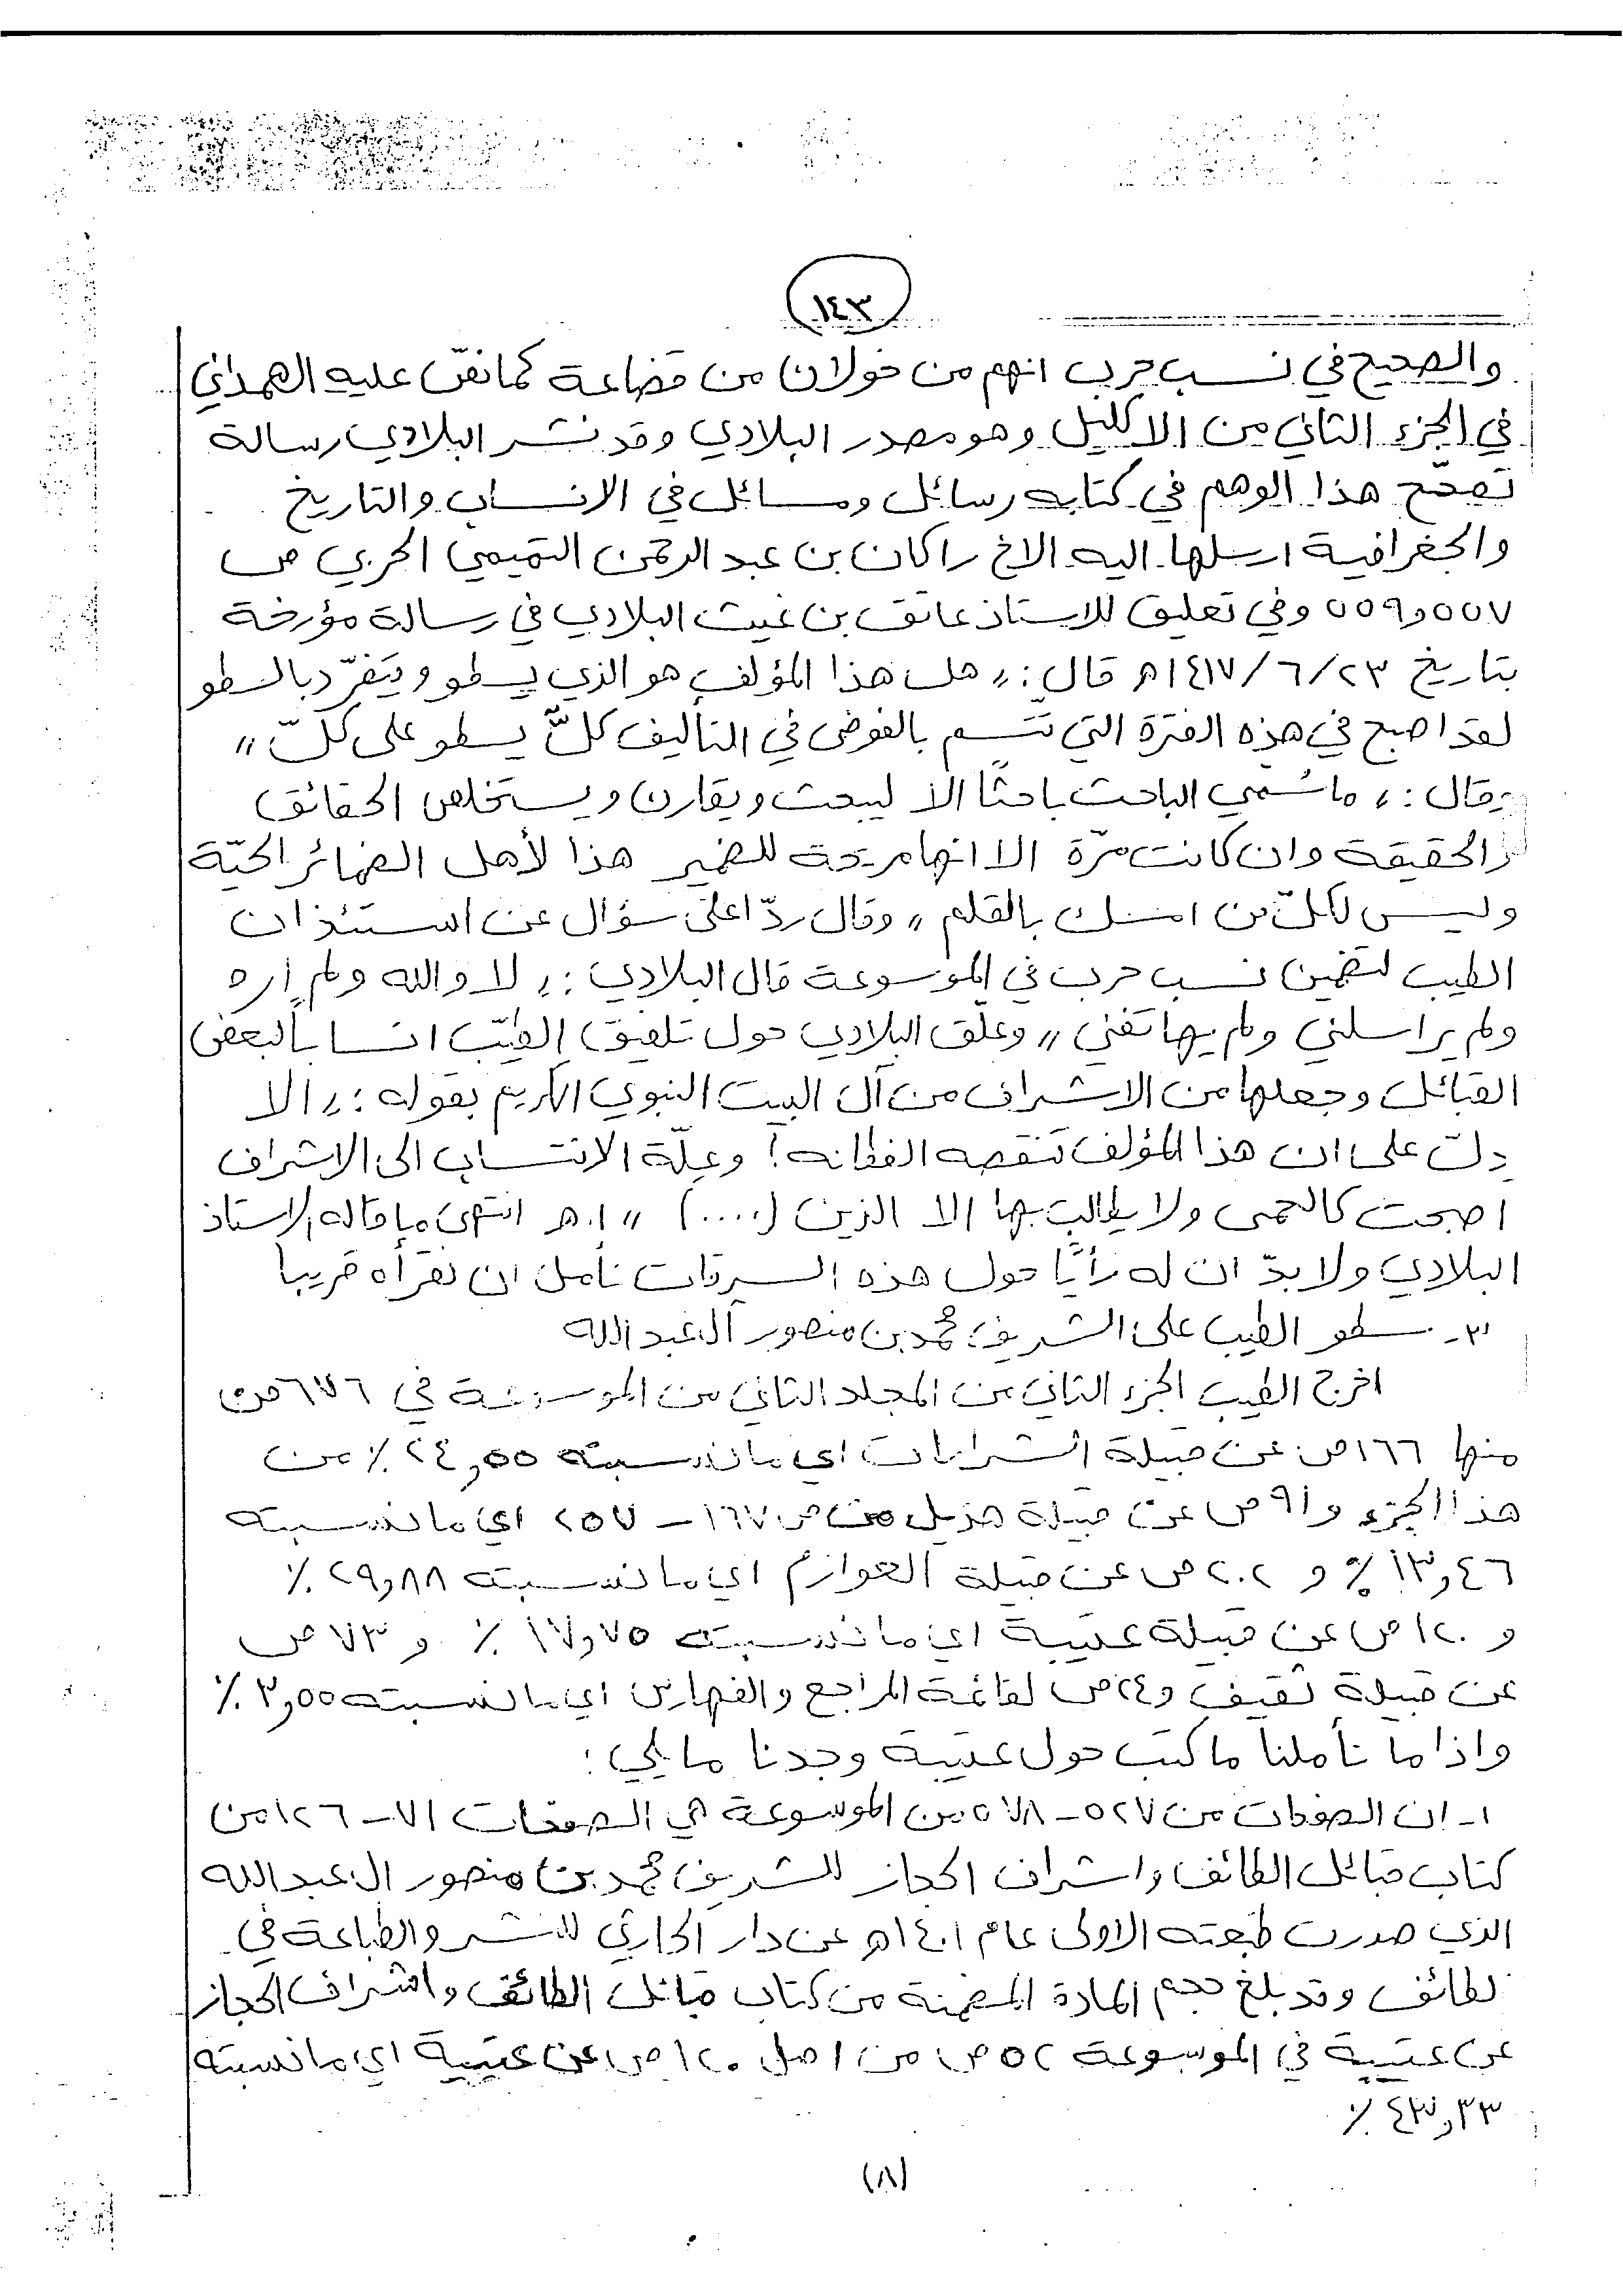 ١٤٣
والصحيح في نسب حرب انهم من خولان من قضاعة كما نصّ عليه الهمداني
في الجزء الثاني من الاكليل وهو مصدر البلادي وقد نشر البلادي رسالة
تصحّح هذا الوهم في كتابه رسائل ومسائل في الانساب والتاريخ
والجغرافية ارسلها اليه الاخ راكان بن عبد الرحمن التميمي الحربي ص
٥٥٧و٥٥٩ وفي تعليق للاستاذ عاتق بن غيث البلادي في رسالة مؤرخة
بتاريخ ١٤١٧/٦/٢٣هـ قال: "هل هذا المؤلف هو الذي يسطو ويتفرّد بالسطو
لقد اصبح في هذه الفترة التي تتسم بالفوضى في التأليف كلٌّ يسطو على كلّ"
وقال: "ما سُمي الباحث باحثًا الا ليبحث ويقارن ويستخلص الحقائق
والحقيقة وان كانت مرّة الا انها مريحة للضمير هذا لأهل الضمائر الحيّة
وليس لكلّ من امسك بالقلم" وقال ردّا على سؤال عن استئذان
الطيب لتضمين نسب حرب في الموسوعة قال البلادي: "لا والله ولم أره
ولم يراسلني ولم يهاتفني" وعلّق البلادي حول تلفيق الطيّب انسابا لبعض
القبائل وجعلها من الاشراف من آل البيت النبوي الكريم بقوله: "الا
يدل على ان هذا المؤلف تنقصه الفطانه! وعلّة الانتساب الى الاشراف
اصبحت كالحمى ولا يطالب بها الا الذين (....)" ا.هـ انتهى ما قاله الاستاذ
البلادي ولا بدّ ان له رأيًا حول هذه السرقات نأمل ان نقرأه قريبا
٣- سطو الطيب على الشريف محمد بن منصور آل عبد الله
اخرج الطيب الجزء الثاني من المجلد الثاني من الموسوعة في ٦٧٦ص
منها ١٦٦ص عن قبيلة الشرارات اي ما نسبته ٢٤,٥٥٪ من
هذا الجزء و٩١ص عن قبيلة هذيل من ص١٦٧-٢٥٧ اي ما نسبته
١٣,٤٦٪ و ٢٠٢ص عن قبيلة العوازم اي ما نسبته ٢٩,٨٨٪
و ١٢٠ص عن قبيلة عتيبة اي ما نسبته ١٧,٧٥٪ و ٧٣ص
عن قبيلة ثقيف و٢٤ص لقائمة المراجع والفهارس اي ما نسبته ٣,٥٥٪
واذا ما تأملنا ما كتب حول عتيبة وجدنا ما يلي:
١- ان الصفحات من ٥٢٧-٥٧٨ من الموسوعة هي الصفحات ٧١-١٢٦ من
كتاب قبائل الطائف واشراف الحجاز للشريف محمد بن منصور ال عبد الله
الذي صدرت طبعته الاولى عام ١٤٠١هـ عن دار الحارثي للنشر والطباعة في
لطائف وقد بلغ حجم المادة المضمنة من كتاب قبائل الطائف واشراف الحجاز
عن عتيبة في الموسوعة ٥٢ص من اصل ١٢٠ص عن عتيبة اي ما نسبته
٤٣,٣٣٪
(٨)